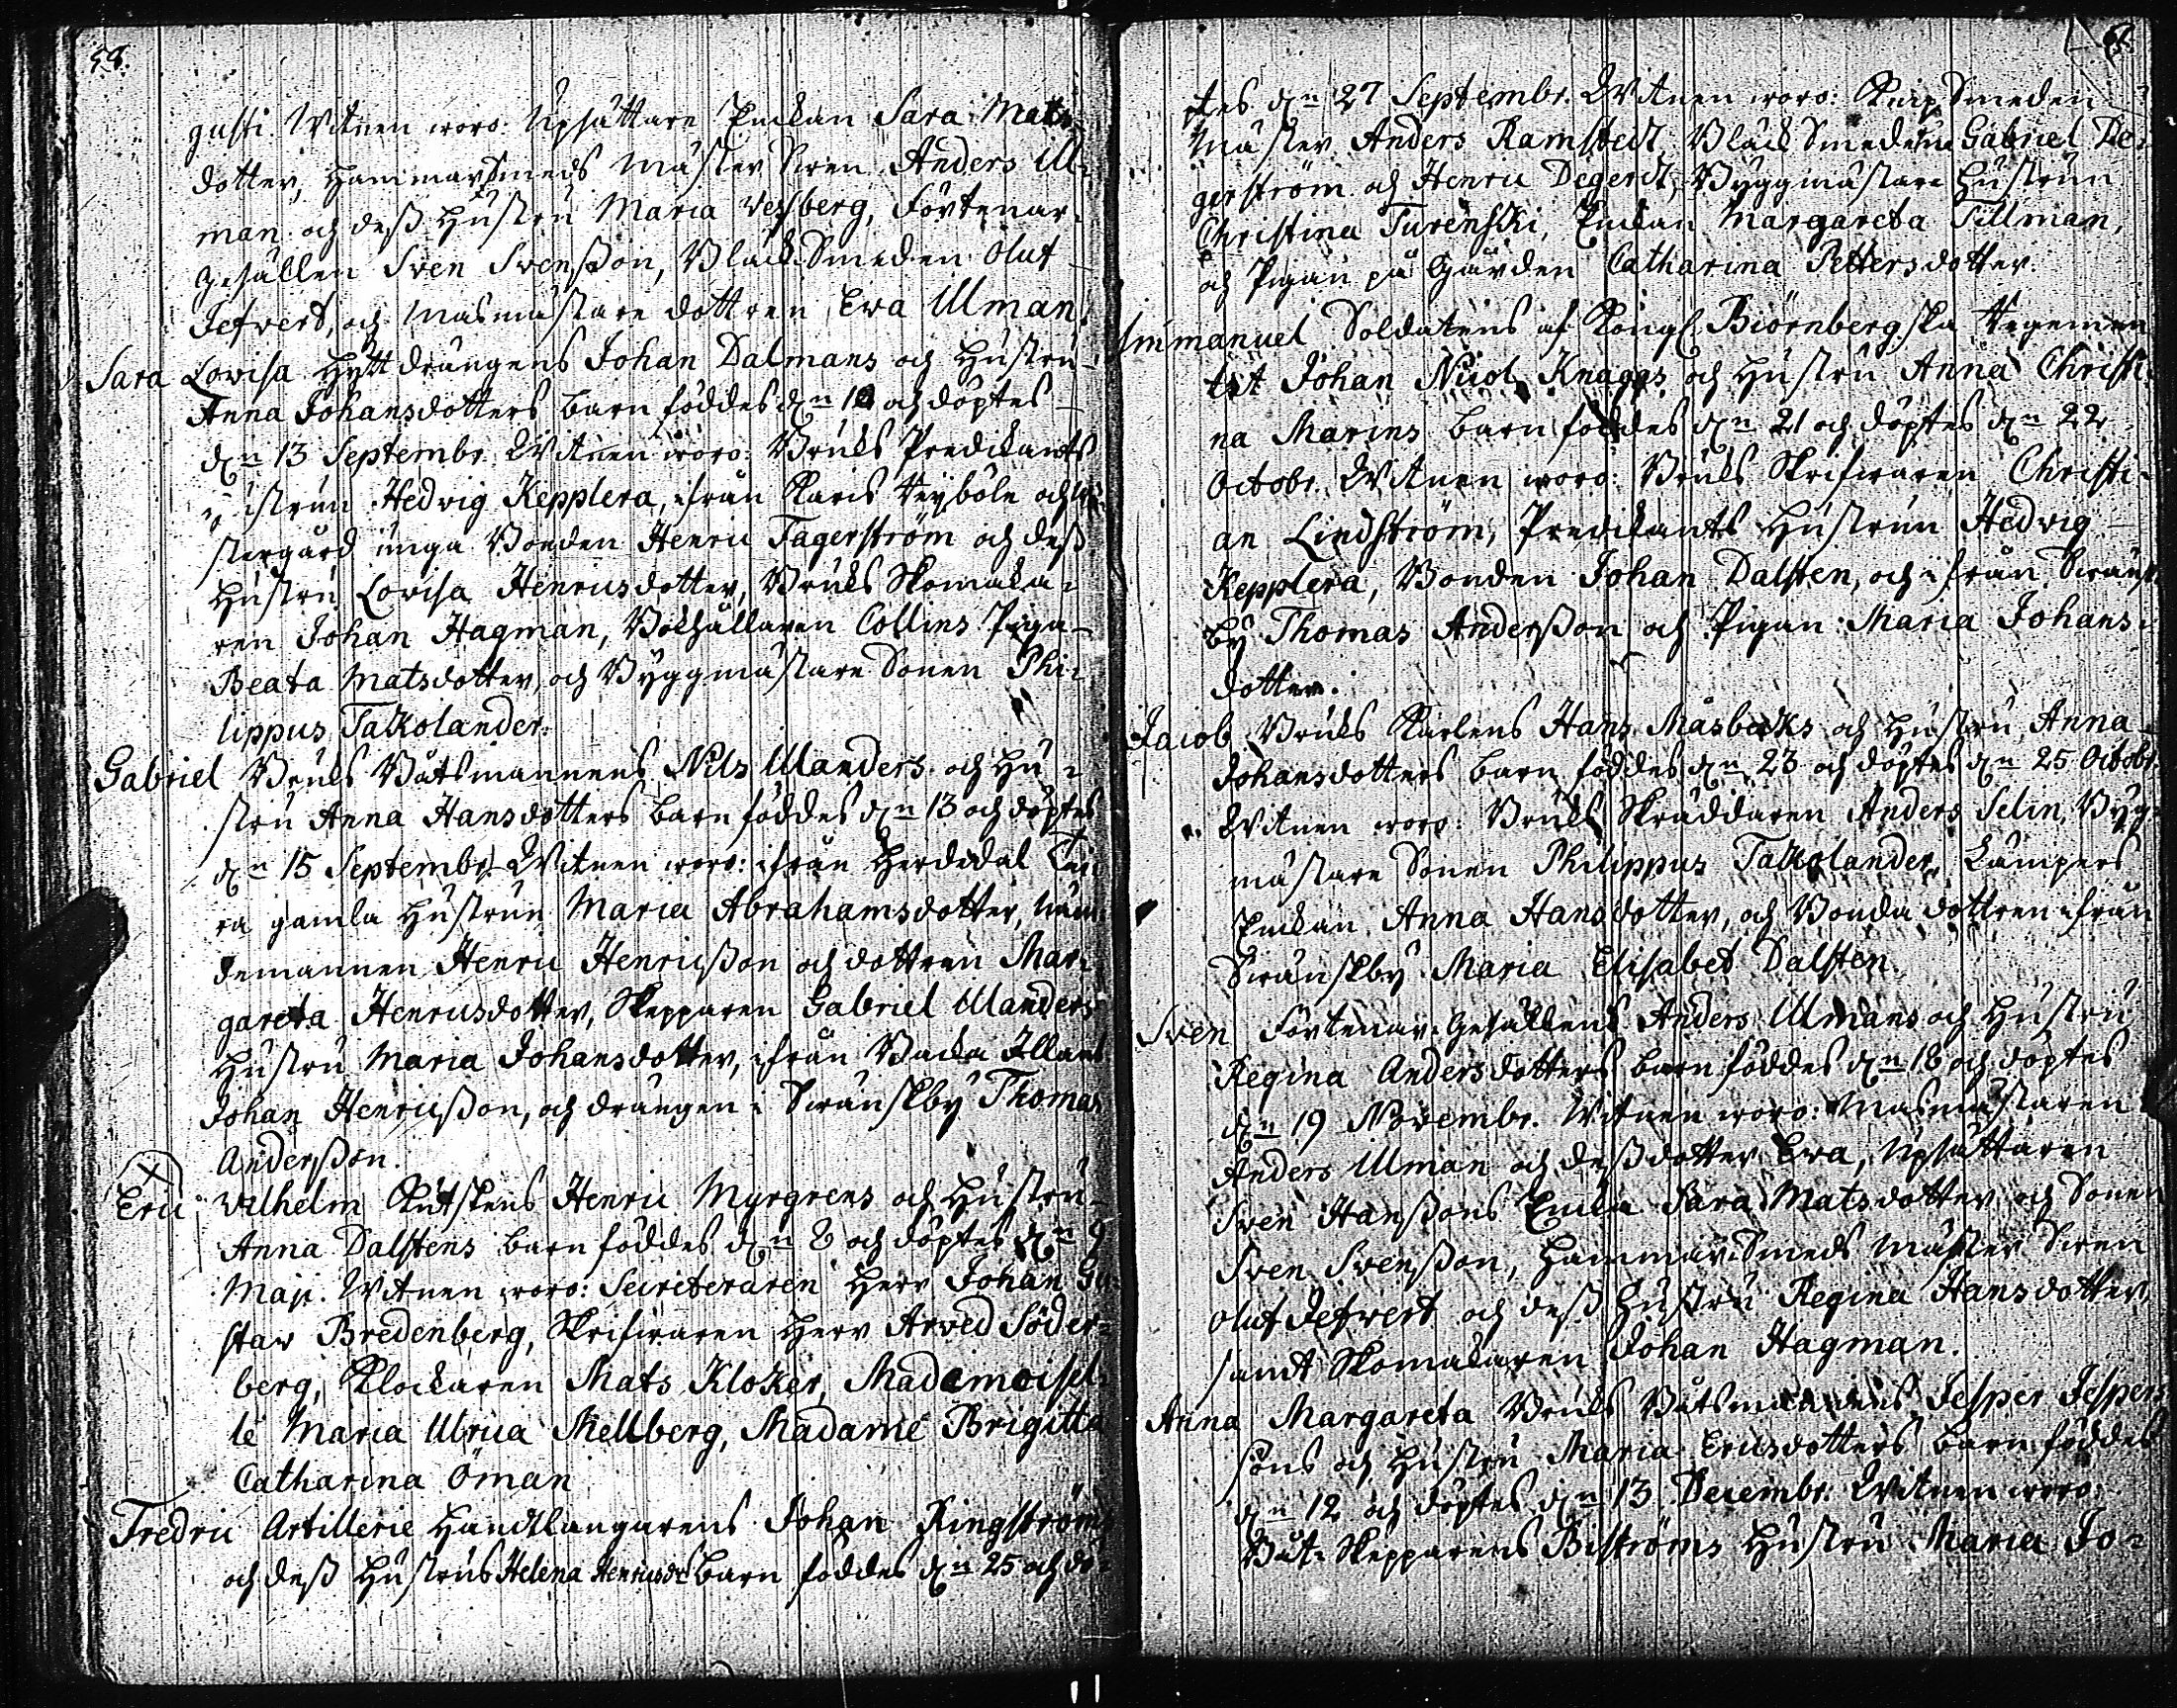 58.
gusti. Witnen woro: Upsättare Enckan Sara Mats-
dotter, Hammarsmeds Mäster Swen Anders Ul-
man och dess Hustru Maria Wessberg, Förtenar-
gesällen Sven Svensson, Bläck Smeden Oluf
Jefvert, och Masmästare dottren Ewa Ulman.
Sara Lovisa Hyttdrängens Johan Dalmans och Hustru
Anna Johansdotters barn föddes dn 10 och döptes
dn 13 Septembr. Witnen woro: Bruks Predikants
Hustrun Hedvig Kepplera, ifrån Karis Nyböle och
stergård unga Bonden Henric Fagerström och dess
Hustru Lovisa Henricsdotter, Bruks Skomaka-
ren Johan Hagman, Bokhållaren Collins Piga
Beata Matsdotter, och Byggmästare Sonen Phi-
lippus Talkolander.
Gabriel Bruks Båtsmannens Nils Ulanders och Hu-
stru Anna Hansdotters barn föddes dn 13 och döptes
dn 15 Septembr. Witnen woro: ifrån Herdedal
ra gamla Hustrun Maria Abrahamsdotter, Näm-
demannen Henric Henricsson och dottren Mar-
gareta Henricsdotter, Skepparen Gabriel Ulanders
Hustru Maria Johansdotter, ifrån Backa
Johan Henricsson, och drängen i Svänskby Thomas
Andersson.
Eric Vilhelm Kutskens Henric Myrgrens och Hustru
Anna Dalstens barn föddes dn 8 och döptes dn 9
Maji. Witnen woro: Secreteraren Herr Johan Gu-
stav Bredenberg, Skrifvaren Herr Arved Söder-
berg, Klockaren Mats Kloker, Mademoisel-
le Maria Ulrica Mellberg, Madame Brigitta
Catharina Öman
Fredric Artillerie Handtlangarens Johan Ringströms
och dess Hustrus Helena Henricsdr barn föddes dn 25 och dö-
ptes dn 27 Septembr. Witnen woro: Knip Smeden
Mäster Anders Ramstedt, Bläck Smederne Gabriel De-
gerström och Henric Degerdt, Byggmästare Hustrun
Christina Turenski, Enckan Margareta Tillman,
och Pigan på Gården Catharina Pettersdotter.
Immanuel Soldatens af Kongl. Biörnbergska Regemen-
tet Johan Nicol. Knaggs och Hustru Anna Christi-
na Marins barn föddes dn 21 och döptes dn 22
Octobr. Witnen woro: Bruks Skrifvaren Christi-
an Lindström, Predikants Hustrun Hedvig
Kepplera, Bonden Johan Dalsten, och ifrån Svänsk-
by Thomas Andersson och Pigan Maria Johans-
dotter.
Jacob Bruks Karlens Hans Måsbacks och Hustru Anna
Johansdotters barn föddes dn 23 och döptes dn 25 Octobr.
Witnen woro: Bruks Skräddaren Anders Selin, Byg-
mästare Sonen Philippus Talkolander, Kämpers
Enckan Anna Hansdotter, och Bonda dottren ifrån
Svänskby Maria Elisabet Dalsten.
Sven Förtenar Gesällens Anders Ulmans och Hustru
Regina Andersdotters barn föddes dn 18 och döptes
dn 19 Novembr. Witnen woro: Masmästaren
Anders Ulman och dess dotter Ewa, Upsättaren
Sven Hanssons Encka Sara Matsdotter och Sonen
Sven Svensson, Hammar Smeds Mäster Swen
Oluf Jefvert och dess Hustru Regina Hansdotter
samt Skomakaren Johan Hagman.
Anna Margareta Bruks Båtsmannens Jesper Jespers-
sons och Hustru Maria Ericsdotters barn föddes
dn 12 och döptes dn 13 Decembr. Witnen woro:
Båt-Skepparens Biströms Hustru Maria Jo-